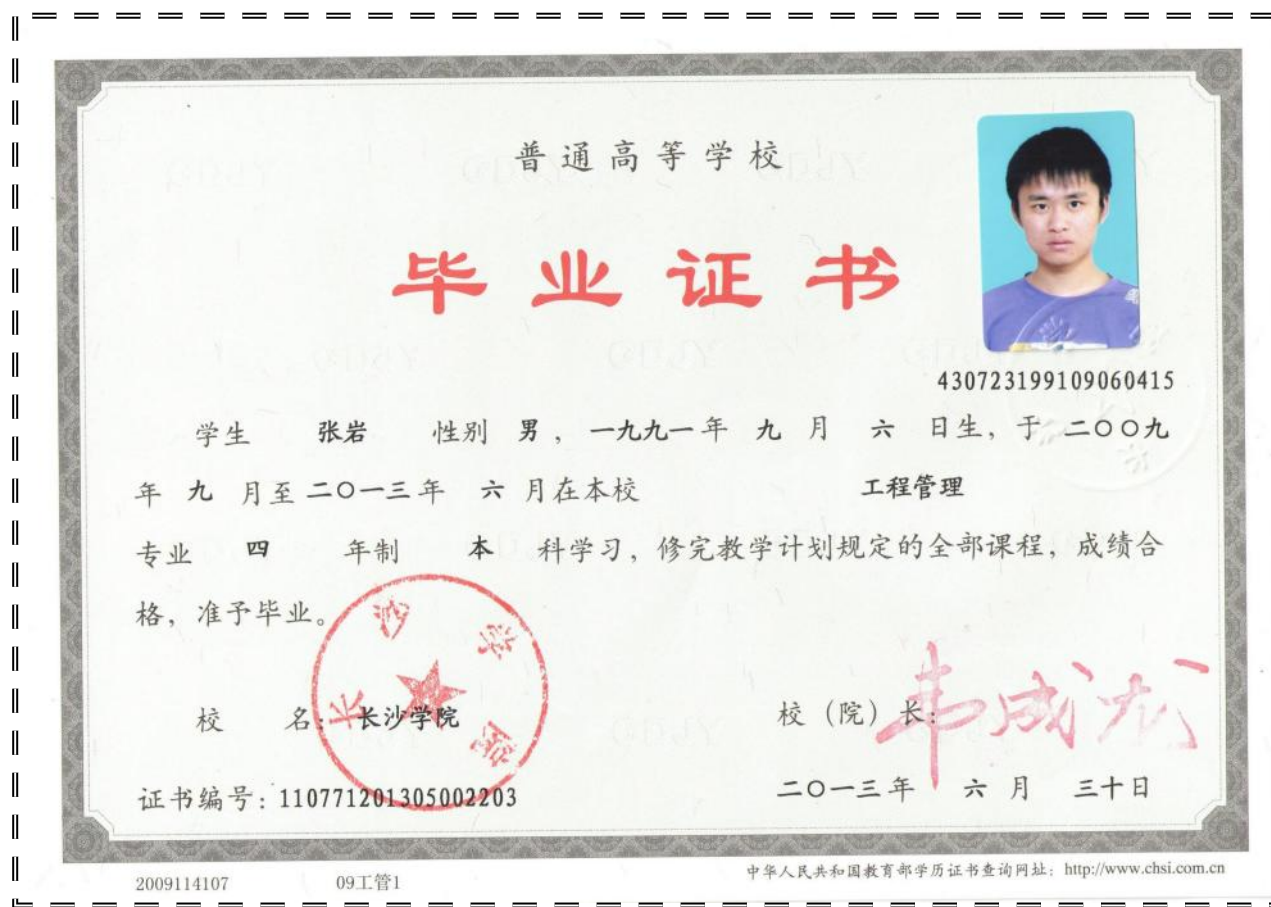 普通高等学校
毕业证书
430723199109060415
学生 张岩 性别 男，一九九一年 九 月 六 日生，于 二〇〇九
年 九 月至 二〇一三年 六 月在本校 工程管理
专业 四 年制 本 科学习，修完教学计划规定的全部课程，成绩合
格，准予毕业。
长沙学院
校 名：长沙学院 校（院）长：韦成龙
证书编号：110771201305002203 二〇一三年 六 月 三十日
2009114107 09工管1 中华人民共和国教育部学历证书查询网址：http://www.chsi.com.cn